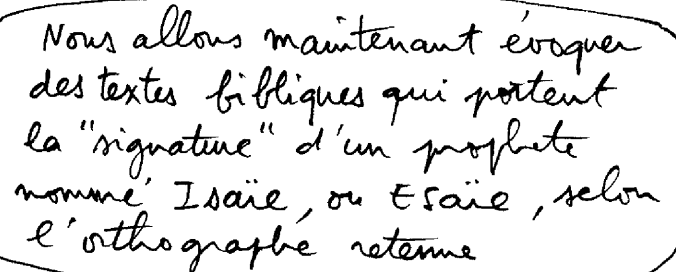 Nous allons maintenant évoquer
des textes bibliques qui portent
la "signature" d'un prophète
nommé Isaïe, ou Esaïe, selon
l'orthographe retenue